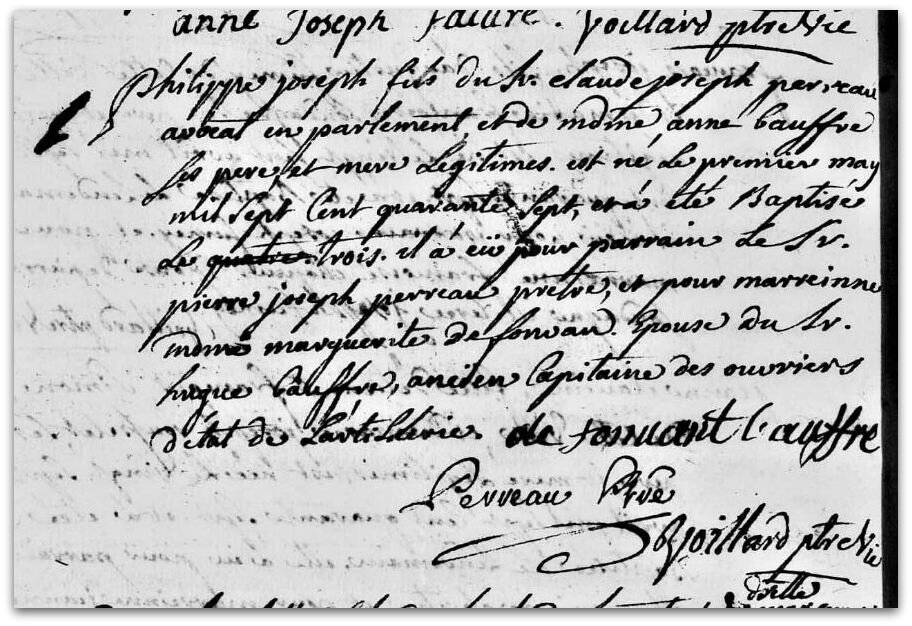 anne Joseph Voillard ptre Vic
Philippe joseph fils du Sr. claude joseph perreau
avocat en parlement, et de mdme anne Cauffre
ses pere, et mere Légitimes. est né Le premier may
mil sept Cent quarante sept, et à eté Baptisé
Le quatre trois. il à eü pour parrain Le Sr.
pierre joseph perreau prêtre, et pour marreinne
mdme marguerite de fonvan. Epouse du Sr.
hugue Cauffre, ancien Capitaine des ouvriers
d'état de L'artillerie. de fonvant Cauffre
Perreau Ptre
Voillard ptre Vic